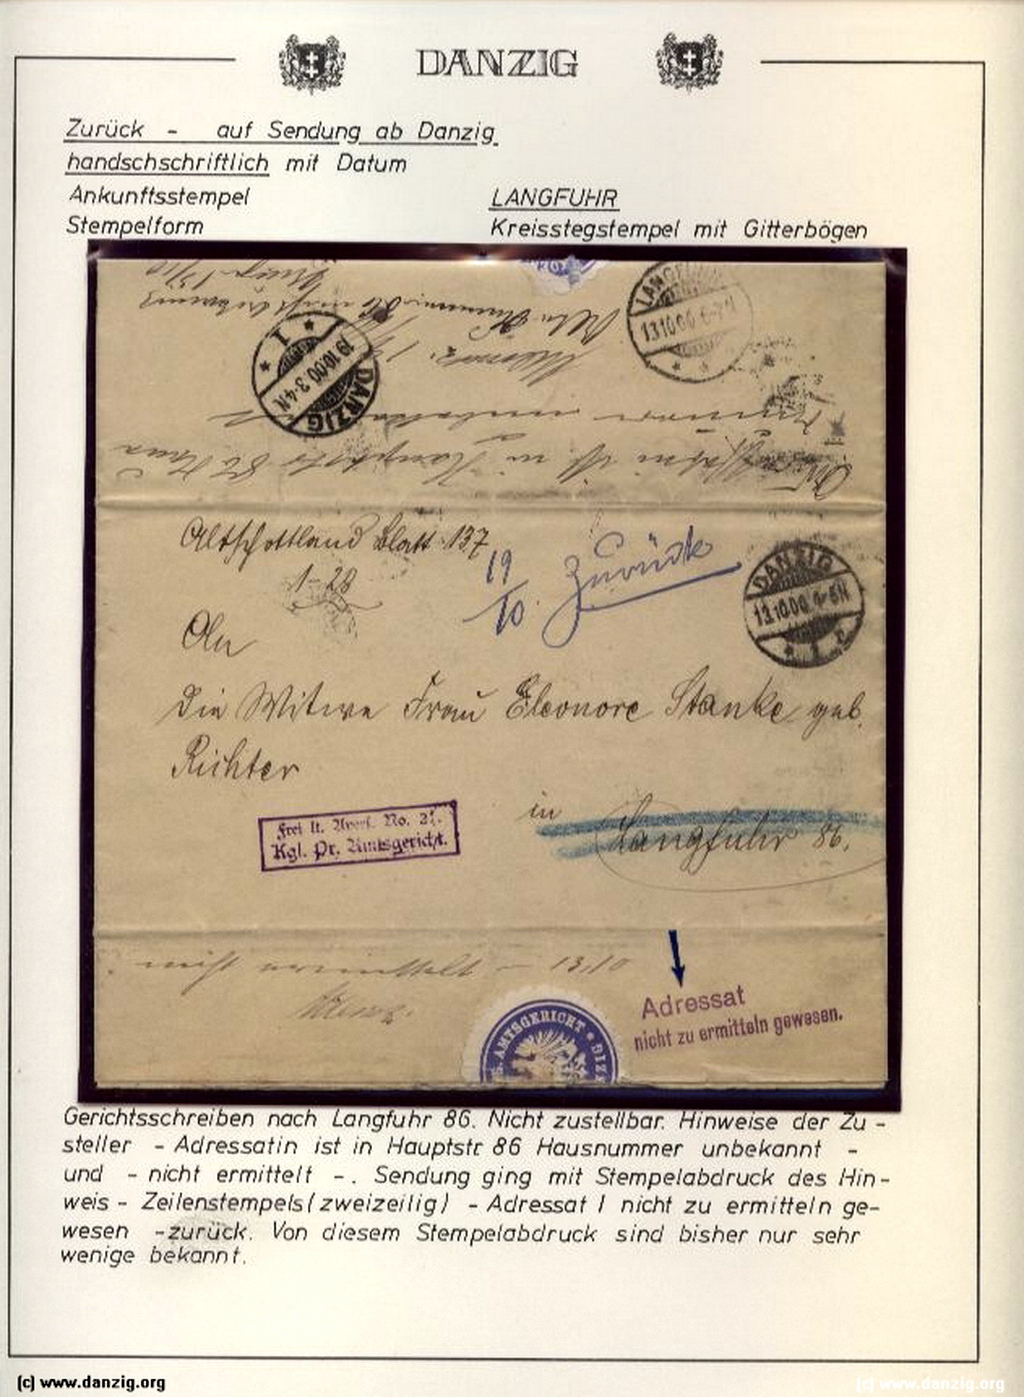 DANZIG
Zurück - auf Sendung ab Danzig
handschschriftlich mit Datum
Ankunftsstempel LANGFUHR
Stempelform Kreisstegstempel mit Gitterbögen
LANGFUHR
13.10.00 6-7N
DANZIG
19.10.00.3-4N
1
Altschottland Blatt 137
1-28
19/10. Zurück
DANZIG
13.10.00.
An
die Witwe Frau Eleonore Stanke geb.
Richter
in Langfuhr 86.
Frei lt. Avers. No. 21.
Kgl. Pr. Amtsgericht.
nicht ermittelt - 13.10
Adressat
nicht zu ermitteln gewesen.
AMTSGERICHT
Gerichtsschreiben nach Langfuhr 86. Nicht zustellbar. Hinweise der Zu-
steller - Adressatin ist in Hauptstr 86 Hausnummer unbekannt -
und - nicht ermittelt -. Sendung ging mit Stempelabdruck des Hin-
weis - Zeilenstempels (zweizeilig) - Adressat / nicht zu ermitteln ge-
wesen - zurück. Von diesem Stempelabdruck sind bisher nur sehr
wenige bekannt.
(c) www.danzig.org
(c) www.danzig.org